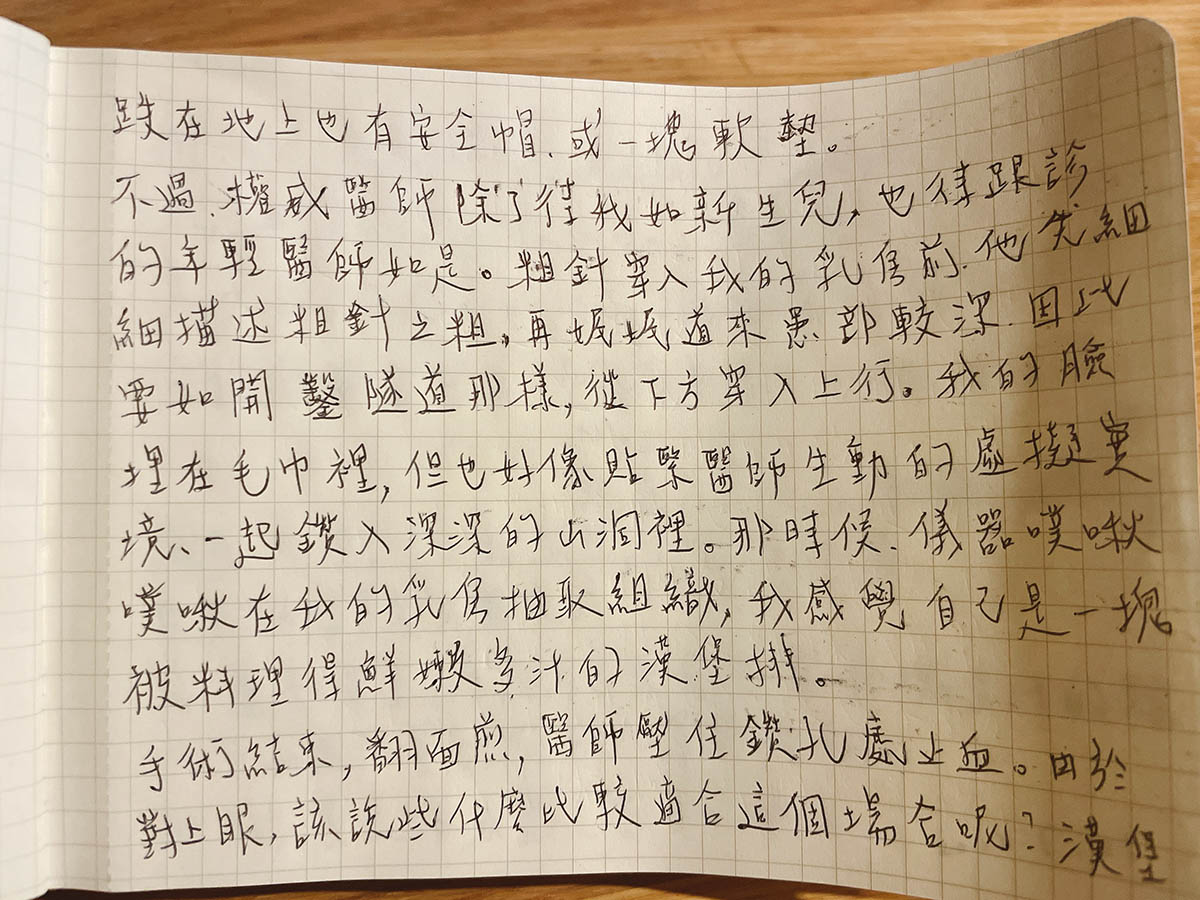 跌在地上也有安全帽、或一塊軟墊。
不過、權威醫師除了待我如新生兒，也待跟診
的年輕醫師如是。粗針穿入我的乳房前、他先細
細描述粗針之粗，再娓娓道來患部較深、因此
要如開鑿隧道那樣，從下方穿入上行。我的臉
埋在毛巾裡，但也好像貼緊醫師生動的虛擬實
境、一起鑽入深深的山洞裡。那時候、儀器噗啾
噗啾在我的乳房抽取組織，我感覺自己是一塊
被料理得鮮嫩多汁的漢堡排。
手術結束，翻面煎，醫師壓住鑽孔處止血。由於
對上眼，該說些什麼比較適合這個場合呢？漢堡